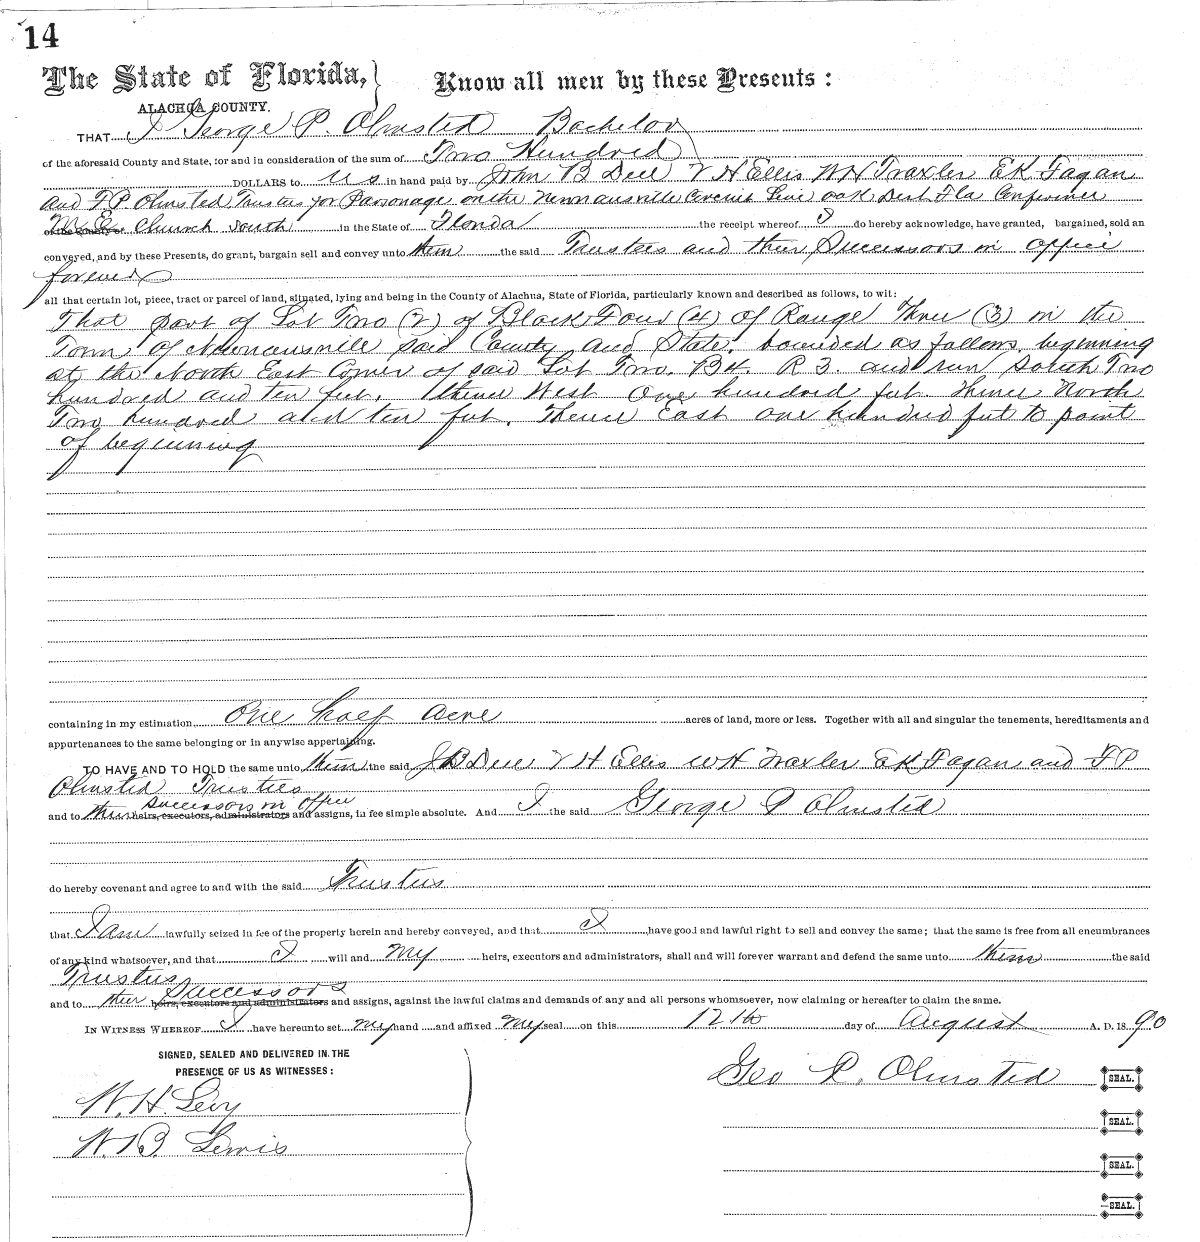 14
The State of Florida, } Know all men by these Presents :
ALACHUA COUNTY.
THAT I George P. Olmsted Bachelor
of the aforesaid County and State, for and in consideration of the sum of Two Hundred
DOLLARS to us in hand paid by John B Dell V H Ellis W H Traxler E K Fagan
and F P Olmsted Trustees for Parsonage on the Newnansville Circuit Live oak Dist Fla Conference
M. E. Church South in the State of Florida the receipt whereof I do hereby acknowledge, have granted, bargained, sold an
conveyed, and by these Presents, do grant, bargain sell and convey unto them the said Trustees and their Successors in office
forever
all that certain lot, piece, tract or parcel of land, situated, lying and being in the County of Alachua, State of Florida, particularly known and described as follows, to wit:
That part of Lot Two (2) of Block Four (4) of Range Three (3) in the
Town of Newnansville said County and State. bounded as follows. beginning
at the North East Corner of said Lot Two. B4. R 3. and run South Two
hundred and ten feet. thence West One hundred feet. thence North
Two hundred and ten feet. Thence East one hundred feet to point
of beginning
containing in my estimation One half acre acres of land, more or less. Together with all and singular the tenements, hereditaments and
appurtenances to the same belonging or in anywise appertaining.
TO HAVE AND TO HOLD the same unto them the said J B Dell V H Ellis W H Traxler E K Fagan and F P
Olmsted Trustees
Successors in office
and to their heirs, executors, administrators and assigns, in fee simple absolute. And I the said George P Olmsted
do hereby covenant and agree to and with the said Trustees
that I am lawfully seized in fee of the property herein and hereby conveyed, and that I have good and lawful right to sell and convey the same; that the same is free from all encumbrances
of any kind whatsoever, and that I will and my heirs, executors and administrators, shall and will forever warrant and defend the same unto them the said
Trustees
Successors
and to their heirs, executors and administrators and assigns, against the lawful claims and demands of any and all persons whomsoever, now claiming or hereafter to claim the same.
IN WITNESS WHEREOF I have hereunto set my hand and affixed my seal on this 12th day of August A. D. 1890
SIGNED, SEALED AND DELIVERED IN THE
PRESENCE OF US AS WITNESSES :
Geo P. Olmsted SEAL.
W. H. Levy
SEAL.
W. B. Lewis
SEAL.
SEAL.